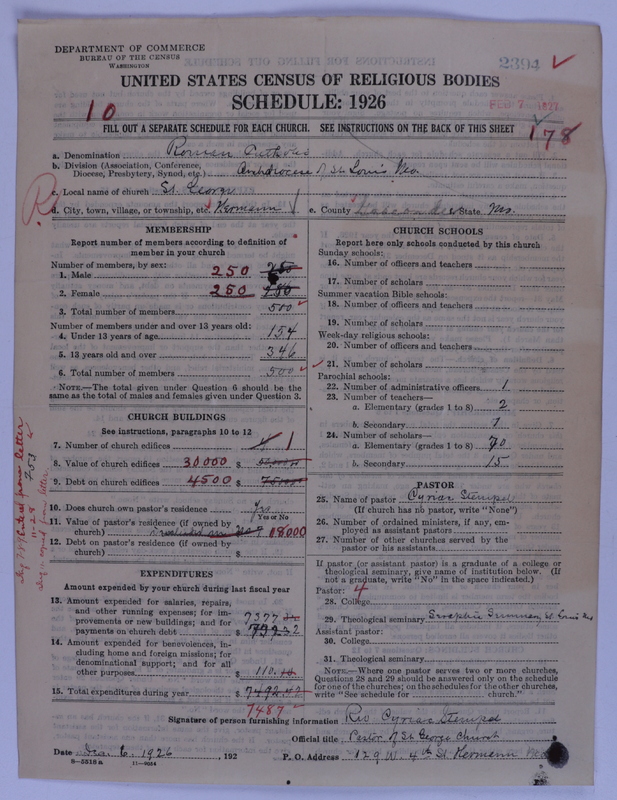 DEPARTMENT OF COMMERCE
BUREAU OF THE CENSUS
WASHINGTON
2394
UNITED STATES CENSUS OF RELIGIOUS BODIES
SCHEDULE: 1926
FEB 7 1927
10
178
FILL OUT A SEPARATE SCHEDULE FOR EACH CHURCH. SEE INSTRUCTIONS ON THE BACK OF THIS SHEET
a. Denomination Roman Catholic
b. Division (Association, Conference, Diocese, Presbytery, Synod, etc.) Archdiocese of St. Louis Mo.
c. Local name of church St. George
d. City, town, village, or township, etc. Hermann e. County Gasconade State Mo.
MEMBERSHIP
Report number of members according to definition of member in your church
Number of members, by sex:
1. Male 250 250
2. Female 250 250
3. Total number of members 500
Number of members under and over 13 years old:
4. Under 13 years of age 154
5. 13 years old and over 346
6. Total number of members 500
NOTE.—The total given under Question 6 should be the same as the total of males and females given under Question 3.
CHURCH BUILDINGS
See instructions, paragraphs 10 to 12
7. Number of church edifices 1
8. Value of church edifices 30000 $
9. Debt on church edifices 4500 $
10. Does church own pastor's residence Yes
Yes or No
11. Value of pastor's residence (if owned by church) 18000
12. Debt on pastor's residence (if owned by church) $
EXPENDITURES
Amount expended by your church during last fiscal year
13. Amount expended for salaries, repairs, and other running expenses; for improvements or new buildings; and for payments on church debt $ 7377
14. Amount expended for benevolences, including home and foreign missions; for denominational support; and for all other purposes $ 110.10
15. Total expenditures during year $ 7492.42
7487
CHURCH SCHOOLS
Report here only schools conducted by this church
Sunday schools:
16. Number of officers and teachers
17. Number of scholars
Summer vacation Bible schools:
18. Number of officers and teachers
19. Number of scholars
Week-day religious schools:
20. Number of officers and teachers
21. Number of scholars
Parochial schools:
22. Number of administrative officers 1
23. Number of teachers—
a. Elementary (grades 1 to 8) 2
b. Secondary 1
24. Number of scholars—
a. Elementary (grades 1 to 8) 70
b. Secondary 15
PASTOR
25. Name of pastor Cyriac Stempel
(If church has no pastor, write "None")
26. Number of ordained ministers, if any, employed as assistant pastors
27. Number of other churches served by the pastor or his assistants
If pastor (or assistant pastor) is a graduate of a college or theological seminary, give name of institution below. (If not a graduate, write "No" in the space indicated.)
Pastor: 4
28. College
29. Theological seminary Seraphic Seminary St Louis Mo
Assistant pastor:
30. College
31. Theological seminary
NOTE.—Where one pastor serves two or more churches, Questions 28 and 29 should be answered only on the schedule for one of the churches; on the schedules for the other churches, write "See schedule for church."
Signature of person furnishing information Rev Cyriac Stempel
Official title Pastor of St George Church
Date Dec 6, 1926, 192 P. O. Address 129 W. 4th St Hermann Mo
8—5516 a 11—9034